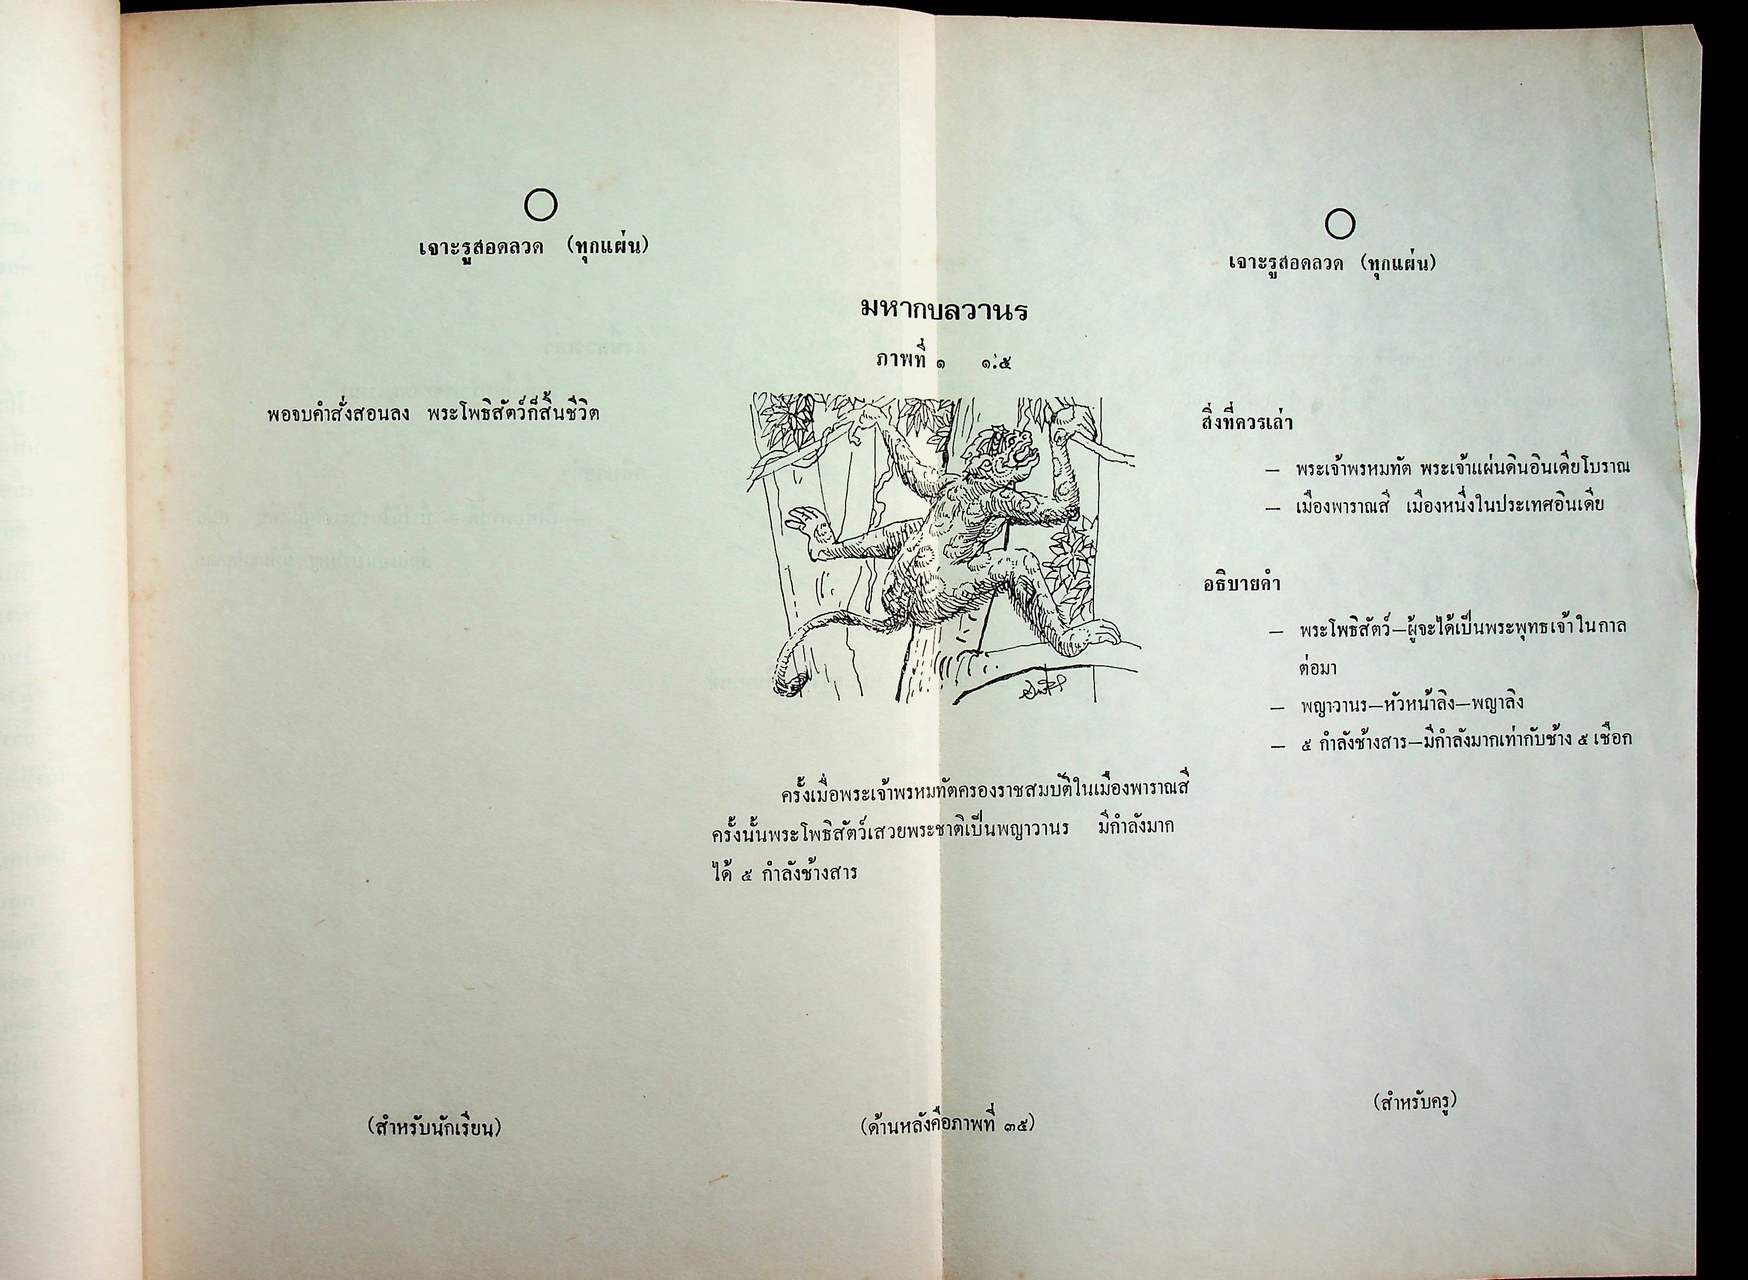 เจาะรูสอดลวด (ทุกแผ่น)
เจาะรูสอดลวด (ทุกแผ่น)
มหากบลวานร
ภาพที่ ๑ ๑:๕
พอจบคำสั่งสอนลง พระโพธิสัตว์ก็สิ้นชีวิต
สิ่งที่ควรเล่า
— พระเจ้าพรหมทัต พระเจ้าแผ่นดินอินเดียโบราณ
— เมืองพาราณสี เมืองหนึ่งในประเทศอินเดีย
อธิบายคำ
— พระโพธิสัตว์—ผู้จะได้เป็นพระพุทธเจ้าในกาล
ต่อมา
— พญาวานร—หัวหน้าลิง—พญาลิง
— ๕ กำลังช้างสาร—มีกำลังมากเท่ากับช้าง ๕ เชือก
ครั้งเมื่อพระเจ้าพรหมทัตครองราชสมบัติในเมืองพาราณสี
ครั้งนั้นพระโพธิสัตว์เสวยพระชาติเป็นพญาวานร มีกำลังมาก
ได้ ๕ กำลังช้างสาร
(สำหรับนักเรียน)
(ด้านหลังคือภาพที่ ๓๕)
(สำหรับครู)